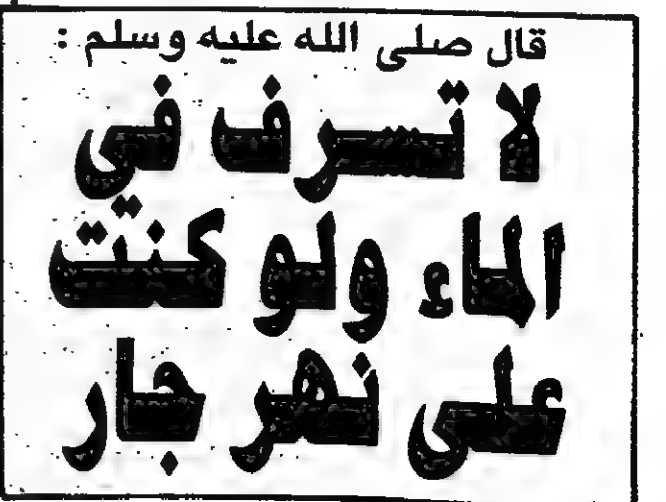 قال صلى الله عليه وسلم :
لا تسرف فى
الماء ولو كنت
على نهر جار